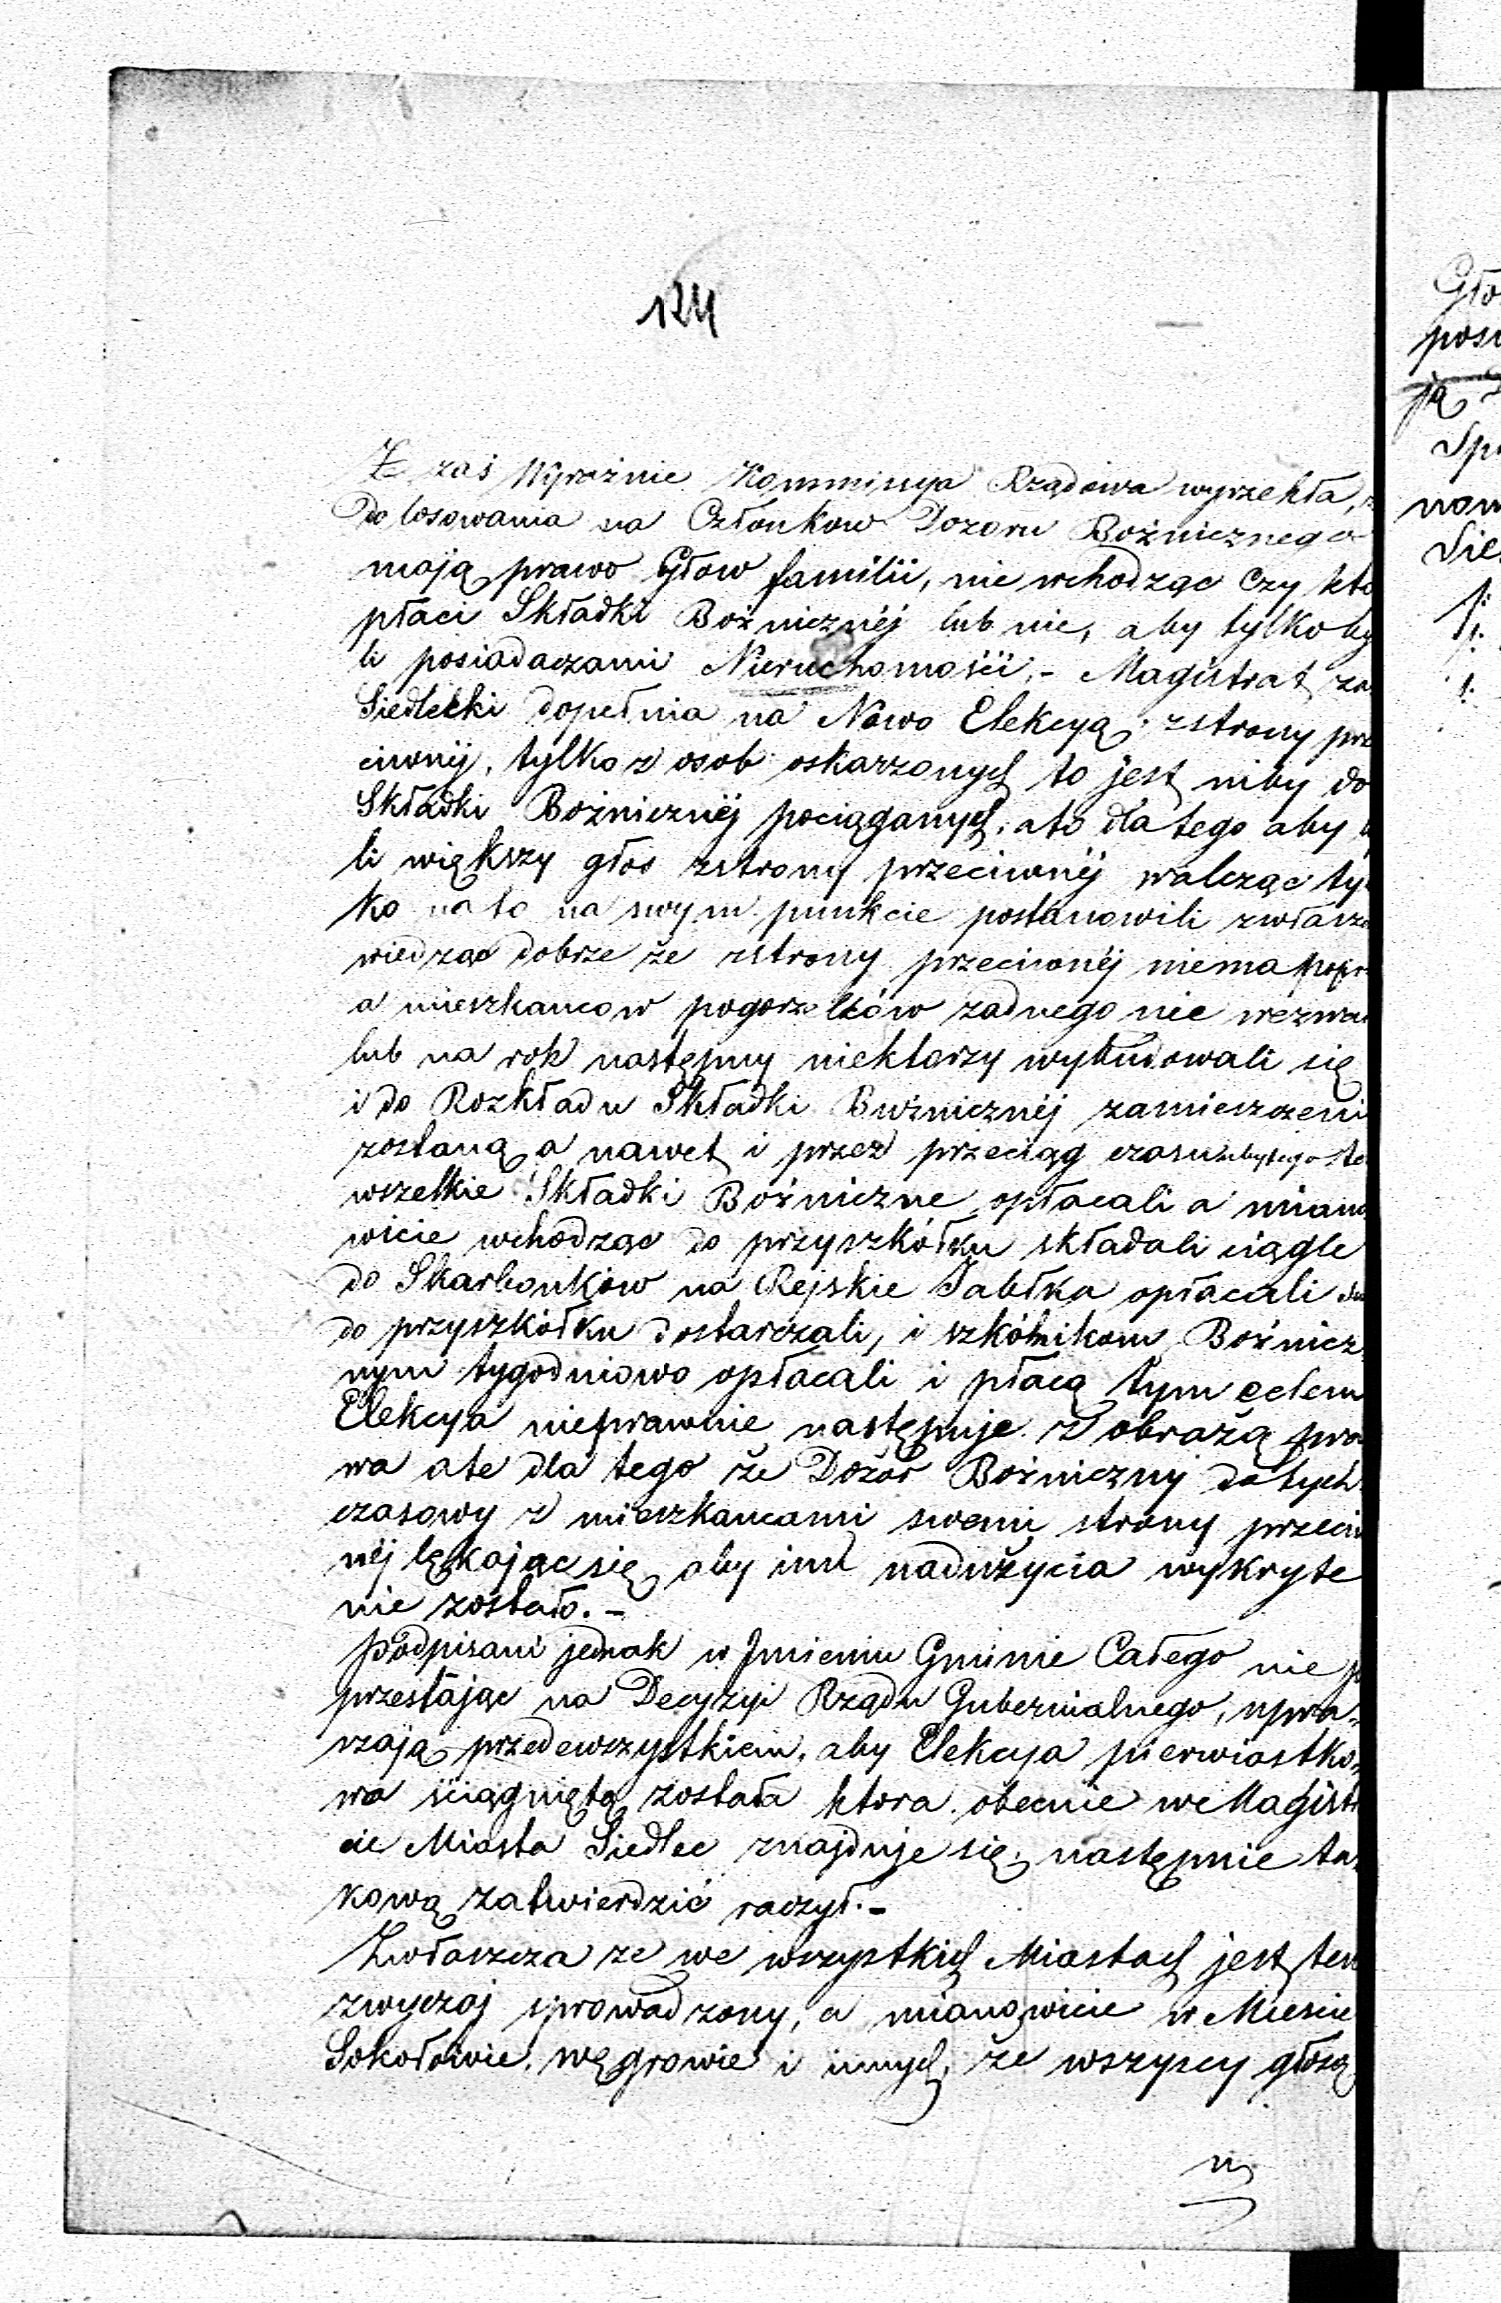 124
Że zaś Wyraźnie Kommissya Rządowa wyrzekła,
do losowania na Członkow Dozoru Bożnicznego
mają prawo Głow familii, nie wchodząc Czy kto
płaci Składki Bożnicznéj lub nie, aby tylko by
li posiadaczami Nieruchomości,- Magistrat zaś
Siedlecki dopełnia na Nowo Elekcyą zstrony prze
ciwnéj, tylko z osob oskarzonych to jest niby do
Składki Bożnicznéj pociąganych, a to dla tego aby
li większy głos zstrony przeciwnéj walcząc tyl
ko na to na swym punkcie postanowili zwłaszc
wiedząc dobrze że zstrony przeciwnéj niema
a mieszkancow pogorzelców zadnego nie wezwa
lub na rok następny niektorzy wybudowali się
i do Rozkładu Składki Bużnicznéj zamieszczeni
zostaną a nawet i przez przeciąg czasu ubytego
wszelkie Składki Bożniczne opłacali a miano
wicie wchodząc do przyszkółku składali ciągle
do Skarbonków na Rejskie Jabłka opłacali
do przyszkółku dostarczali, i szkólnikom Bożnicz
nym tygodniowo opłacali i płacą tym celem
Elekcya nieprawnie następuje z obrazą pra
wa ale dla tego że Dozór Bożniczny dotych
czasowy z mieszkancami swemi strony przeciw
néj lękając się, aby im nadużycia wykryte
nie zostało.-
Podpisani jednak w Jmieniu Gminie Całego nie
przestając na Decyzyi Rządu Gubernialnego, upra-
szają przedewszystkiem, aby Elekcya pierwiastko-
wa ściągniętą została ktora obecnie we Magistr
cie Miasta Siedlec znajduje się, następnie ta-
kową zatwierdzić raczył.-
Zwłaszcza ze we wszystkich Miastach jest ten
zwyczaj wprowadzony, a mianowicie w Miescie
Sokołowie, węgrowie i innych, że wszyscy głosą
Gło
posi
ją
Spr
nom
Sie